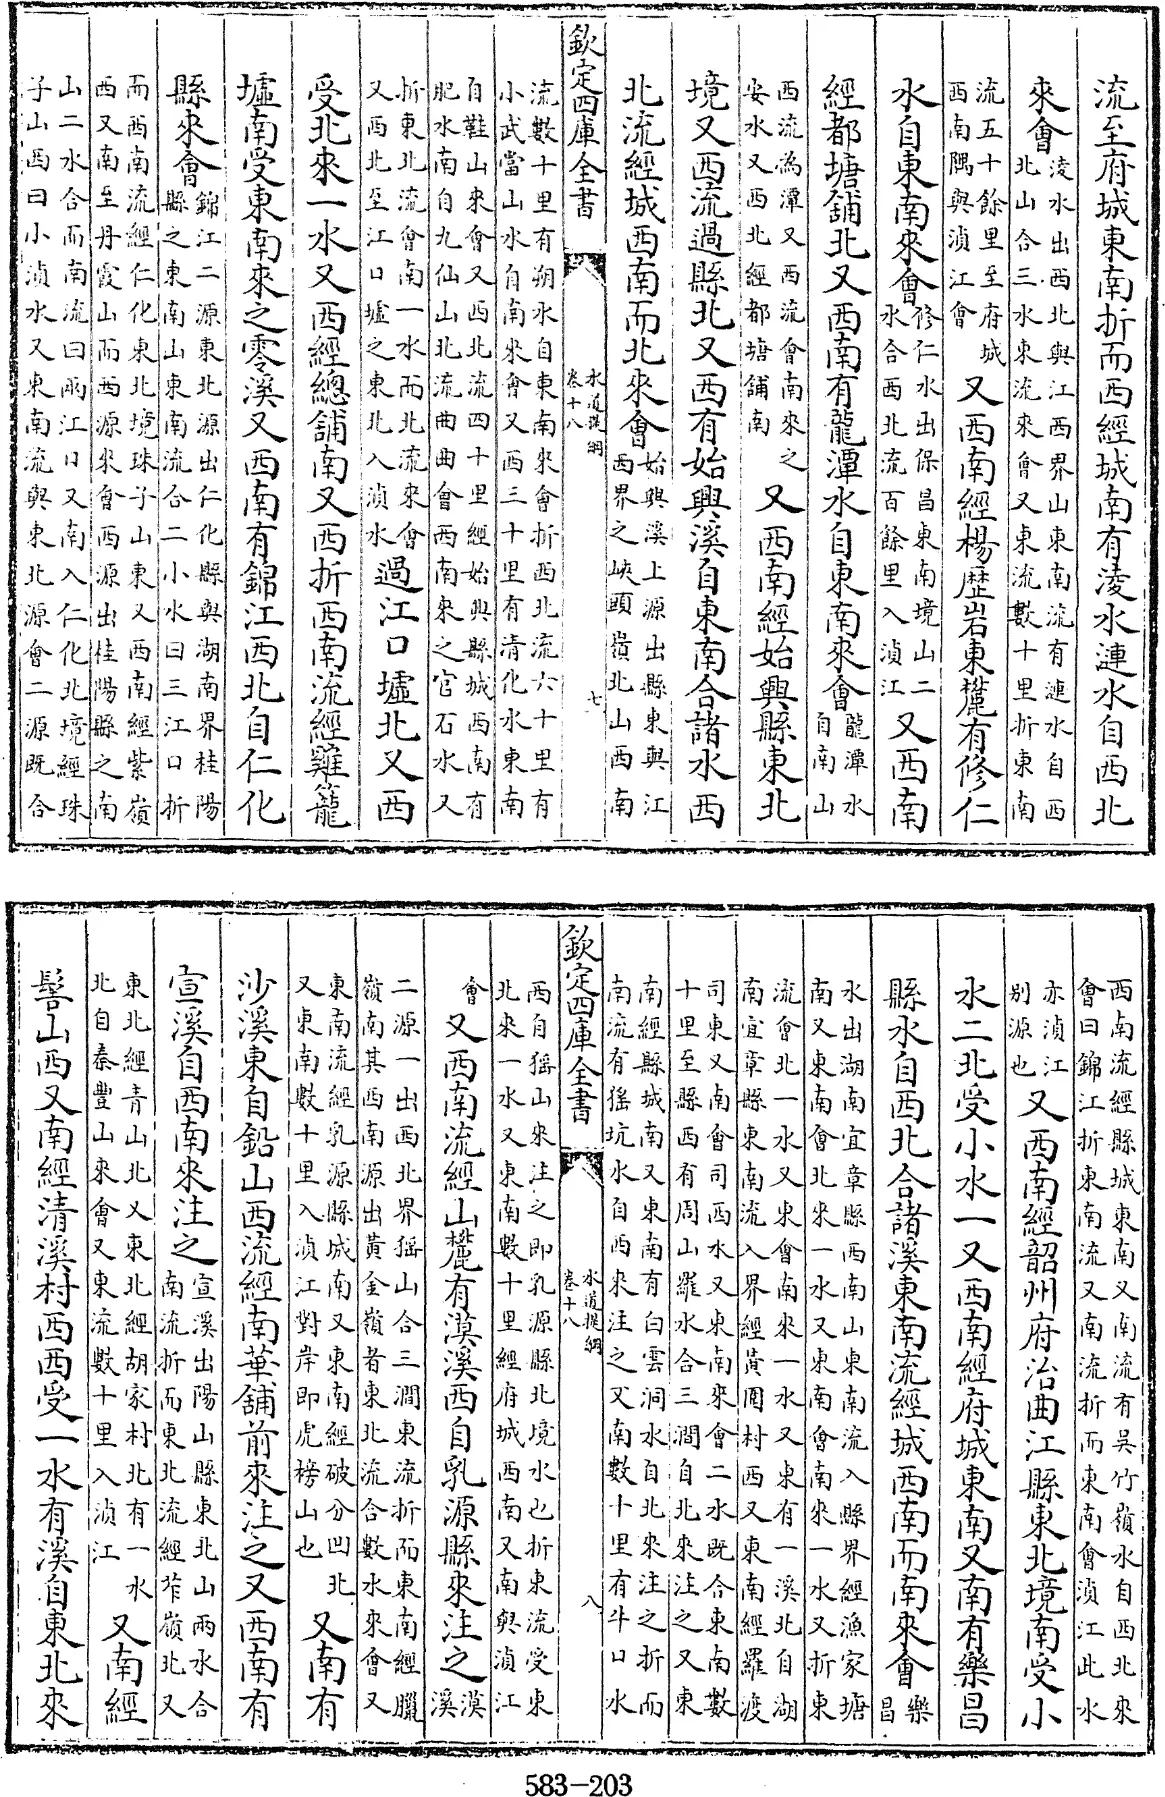 流至府城東南折而西經城南有淩水連水自西北
來會淩水出西北與江西界山東南流有連水自西
北山合三水東流來會又東流數十里折東南
流五十餘里至府城
西南隅與湞江會又西南經楊歷岩東麓有修仁
水自東南來會修仁水出保昌東南境山二
水合西北流百餘里入湞江又西南
經都塘舖北又西南有龍潭水自東南來會龍潭水
自南山
西流為潭又西流會南來之
安水又西北經都塘舖南又西南經始興縣東北
境又西流過縣北又西有始興溪自東南合諸水西
北流經城西南而北來會始興溪上源出縣東與江
西界之峽頭嶺北山西南
欽定四庫全書
水道提綱
卷十八
七
流數十里有朔水自東南來會折西北流六十里有
小武當山水自南來會又西三十里有清化水東南
自鞋山來會又西北流四十里經始興縣城西南有
肥水南自九仙山北流曲曲會西南來之官石水又
折東北流會南一水而北流來會
又西北至江口墟之東北入湞水過江口墟北又西
受北來一水又西經總舖南又西折西南流經雞籠
墟南受東南來之零溪又西南有錦江西北自仁化
縣來會錦江二源東北源出仁化縣與湖南界桂陽
縣之東南山東南流合二小水曰三江口折
而西南流經仁化東北境珠子山東又西南經紫嶺
西又南至丹霞山而西源來會西源出桂陽縣之南
山二水合而南流曰兩江口又南入仁化北境經珠
子山西曰小湞水又東南流與東北源會二源既合
西南流經縣城東南又南流有吳竹嶺水自西北來
會曰錦江折東南流又南流折而東南會湞江此水
亦湞江
別源也又西南經韶州府治曲江縣東北境南受小
水二北受小水一又西南經府城東南又南有樂昌
縣水自西北合諸溪東南流經城西南而南來會樂
昌
水出湖南宜章縣西南山東南流入縣界經漁家塘
南又東南會北來一水又東南會南來一水又折東
流會北一水又東會南來一水又東有一溪北自湖
南宜章縣東南流入界經黃圃村西又東南經羅渡
司東又南會司西水又東南來會二水既合東南數
十里至縣西有周山羅水合三澗自北來注之又東
南經縣城南又東南有白雲洞水自北來注之折而
南流有猺坑水自西來注之又南數十里有斗口水
欽定四庫全書
水道提綱
卷十八
八
西自猺山來注之即乳源縣北境水也折東流受東
北來一水又東南數十里經府城西南又南與湞江
會又西南流經山麓有漠溪西自乳源縣來注之漠
溪
二源一出西北界猺山合三澗東流折而東南經臘
嶺南其西南源出黃金嶺者東北流合數水來會又
東南流經乳源縣城南又東南經破分凹北
又東南數十里入湞江對岸即虎榜山也又南有
沙溪東自鉛山西流經南華舖前來注之又西南有
宣溪自西南來注之宣溪出陽山縣東北山兩水合
南流折而東北流經苲嶺北又
東北經青山北又東北經胡家村北有一水
北自泰豐山來會又東流數十里入湞江又南經
髻山西又南經清溪村西西受一水有溪自東北來
583-203